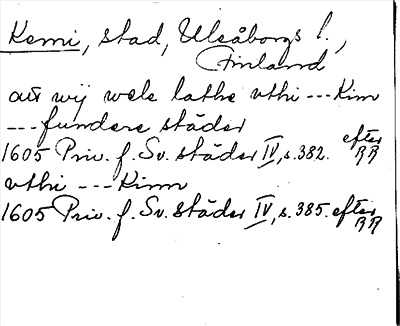 Kemi, stad, Uleåborgs l.,
Finland
att wij wele lathe vthi --- Kim
--- fundere städer
1605 Priv. f. Sv. städer IV, s. 382. efter RR
vthi --- Kim
1605 Priv. f. Sv. städer IV, s. 385. efter RR